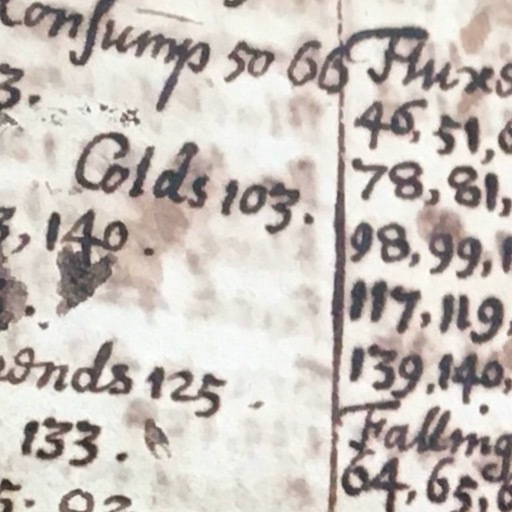 Consump 50 66
3.
Colds 103.
3, 140.
onds 125.
133.
5. 92
Fluxs
46, 51, 6
78, 81,
98, 99, 1
117, 119,
139, 140,
Falling
64, 65, 6